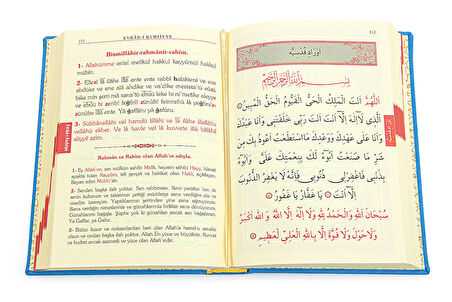 313
EVRÂD-I KUDSİYYE
Bismillâhir-rahmânir-rahîm.
1- Allahümme entel melikül hakkul kayyûmül hakkul
mübîn.
2- Ellezî lâ ilâhe illâ ente ente rabbî halaktenî ve ene
abdüke ve ene alâ ahdike ve va'dike mesteta'tü eûzü
bike min şerri mâ sana'tü ebûü leke bi ni'metike aleyye
ve ebûü bi zenbî feğfirlî zünûbî feinnehû lâ yeğfiruz
zünûbe illâ ente. Yâ ğaffâru yâ ğafûru.
3- Sübhânellâhi vel hamdü lillâhi ve lâ ilâhe illellâhü
vellâhü ekber. Ve lâ havle ve lâ kuvvete illâ billâhil
aliyyil azîm.
Rahmân ve Rahîm olan Allah'ın adıyla.
1- Ey Allah'ım, mülkün sahibi Melik, hayatın sahibi Hayy, hilkati
ayakta tutan Kayyûm, tek gerçek ve hukukun sahibi olan Hakk, açıklayan,
Beyan eden Mübîn'sin.
2- Senden başka ilah yoktur. Sen rabbimsin. Beni yarattın ben de
senin kulunum ve takatımın yettiği müddetçe sana verdiğim ahdin ve
vadim üzereyim. Yaptıklarımın şerrinden yine sana sığınıyorum.
Bana verdiğin nimetlerinle ve günahlarımla birlikte sana dönüyorum.
Günahlarımı bağışla. Şüphe yok ki günahları ancak sen bağışlarsın.
Ya Gaffar, ya Gafur.
3- Bütün kusur ve noksanlardan beri olan Allah'a hamd-ü senalar
olsun ve ondan başka ilah yoktur. Allah En yüce ve büyüktür. Kuvvet
ve kudret ancak azametli ve yüce olan Allah'ındır.
312
اَوْرَادِ قُدْسِيَّه
بِسْمِ اللهِ الرَّحْمٰنِ الرَّحِيمِ
اَللّٰهُمَّ اَنْتَ الْمَلِكُ الْحَيُّ الْقَيُّومُ الْحَقُّ الْمُبِينُ
اَلَّذِي لَا اِلٰهَ اِلَّا اَنْتَ اَنْتَ رَبِّي خَلَقْتَنِي وَاَنَا عَبْدُكَ
وَاَنَا عَلٰى عَهْدِكَ وَوَعْدِكَ مَا اسْتَطَعْتُ اَعُوذُ بِكَ مِنْ
شَرِّ مَا صَنَعْتُ اَبُوءُ لَكَ بِنِعْمَتِكَ عَلَيَّ
وَاَبُوءُ بِذَنْبِي فَاغْفِرْ لِي ذُنُوبِي فَاِنَّهُ لَا يَغْفِرُ الذُّنُوبَ
اِلَّا اَنْتَ يَا غَفَّارُ يَا غَفُورُ
سُبْحَانَ اللهِ وَالْحَمْدُ لِلّٰهِ وَلَا اِلٰهَ اِلَّا اللهُ وَاللهُ اَكْبَرُ
وَلَا حَوْلَ وَلَا قُوَّةَ اِلَّا بِاللهِ الْعَلِيِّ الْعَظِيمِ